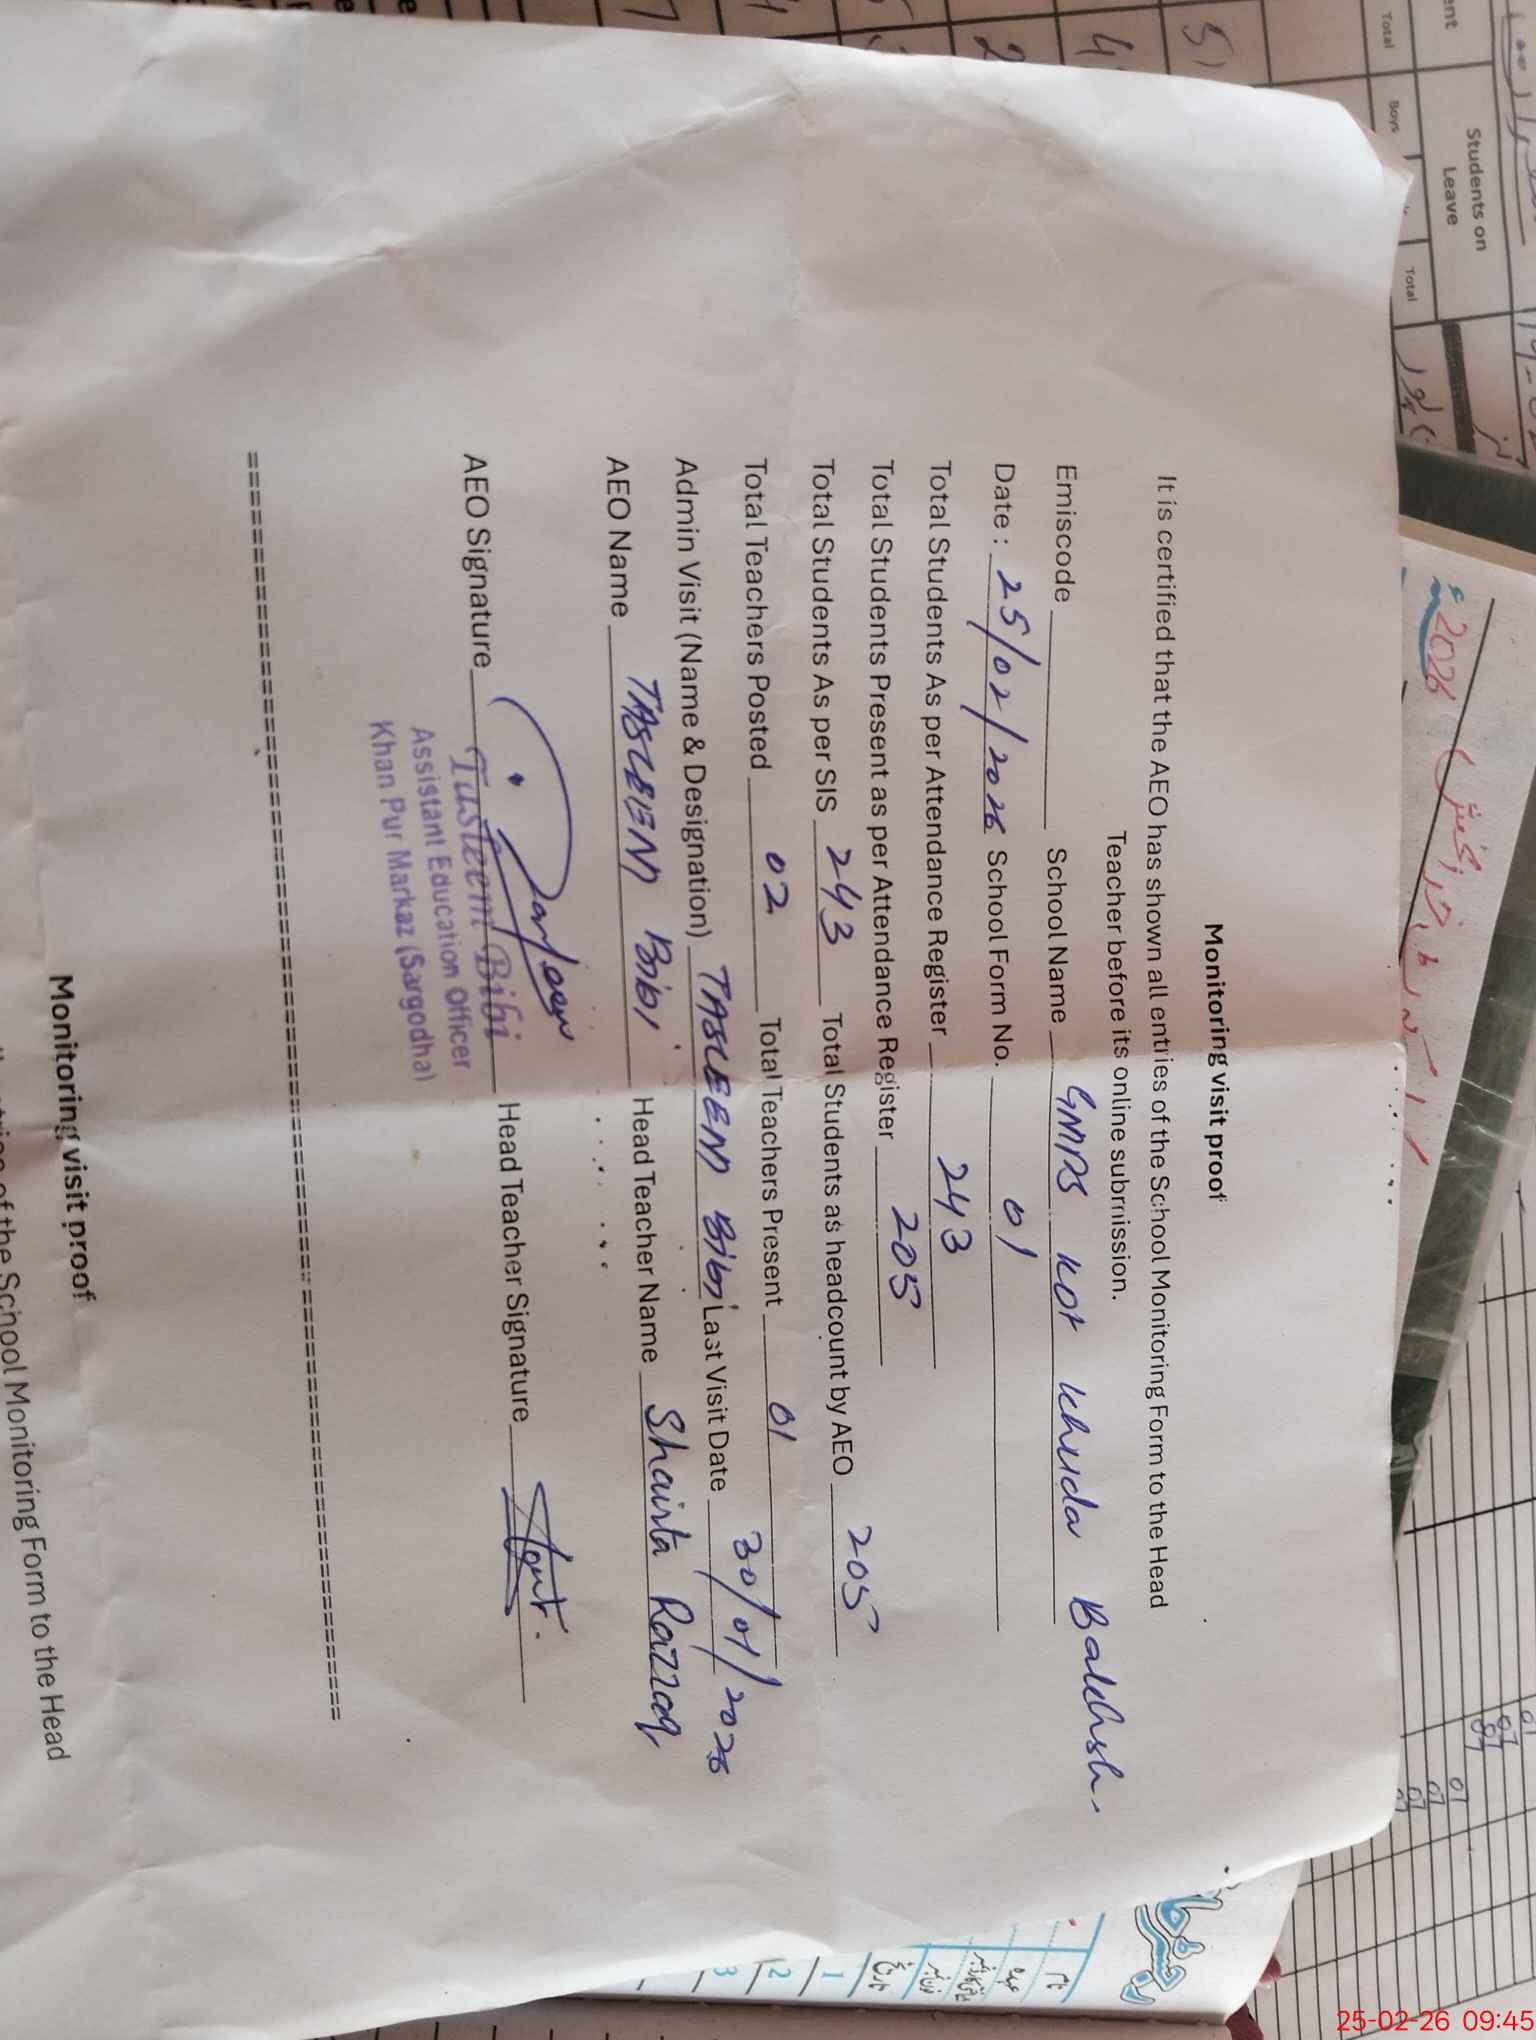 Monitoring visit proof
It is certified that the AEO has shown all entries of the School Monitoring Form to the Head
Teacher before its online submission.
Emiscode School Name GMPS Kot Khuda Bakhsh.
Date : 25/02/2026 School Form No. 01
Total Students As per Attendance Register 243
Total Students Present as per Attendance Register 205
Total Students As per SIS 243 Total Students as headcount by AEO 205
Total Teachers Posted 02 Total Teachers Present 01
Admin Visit (Name & Designation) TASLEEM Bibi Last Visit Date 30/01/2026
AEO Name TASLEEM Bibi Head Teacher Name Shaista Razzaq
AEO Signature Head Teacher Signature
Tasleem Bibi
Assistant Education Officer
Khan Pur Markaz (Sargodha)
Monitoring visit proof
of the School Monitoring Form to the Head
Students on
Leave
Total
Boys
Total
2026
نام
عہدہ
تاریخ
1
2
3
25-02-26 09:45